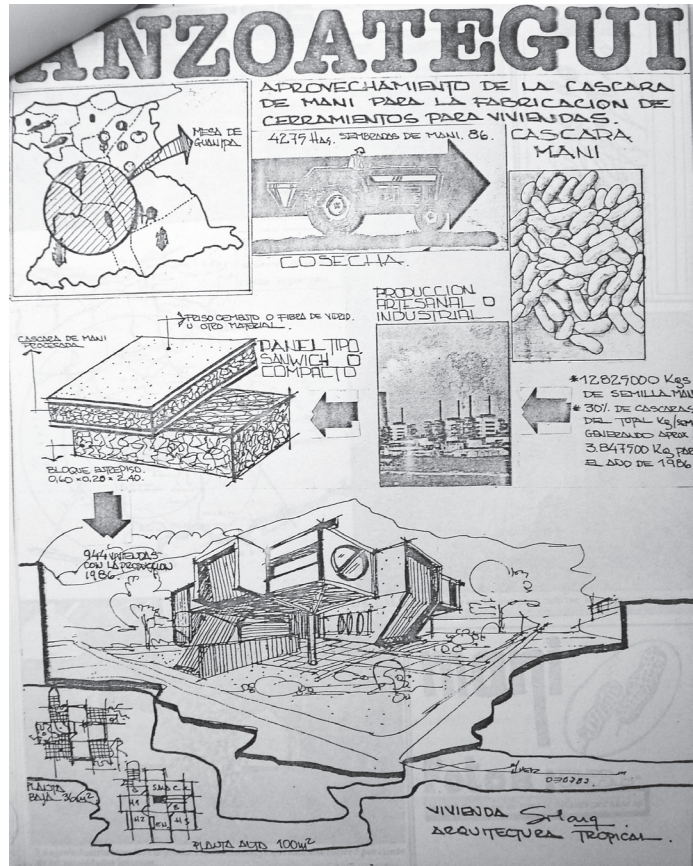 ANZOATEGUI
APROVECHAMIENTO DE LA CASCARA
DE MANI PARA LA FABRICACION DE
CERRAMIENTOS PARA VIVIENDAS.
MESA DE
GUANIPA
4275 Has. SEMBRADAS DE MANI. 86.
COSECHA.
CASCARA
MANI
PRODUCCION
ARTESANAL O
INDUSTRIAL
FRISO CEMENTO O FIBRA DE VIDRIO.
U OTRO MATERIAL.
CASCARA DE MANI
PROCESADA
PANEL TIPO
SANWICH O
COMPACTO
BLOQUE ENTREPISO.
0,60 x 0.20 x 2,40.
*12825000 Kgs
DE SEMILLA MANI
* 30% DE CASCARAS
DEL TOTAL Kg/SEM
GENERANDO APROX
3.847500 Kg PAR
EL AÑO DE 1986
944 VIVIENDAS
CON LA PRODUCCION
1986.
PLANTA
BAJA 36m²
PLANTA ALTA 100m²
H1
H2
H3
VIVIENDA
ARQUITECTURA TROPICAL.